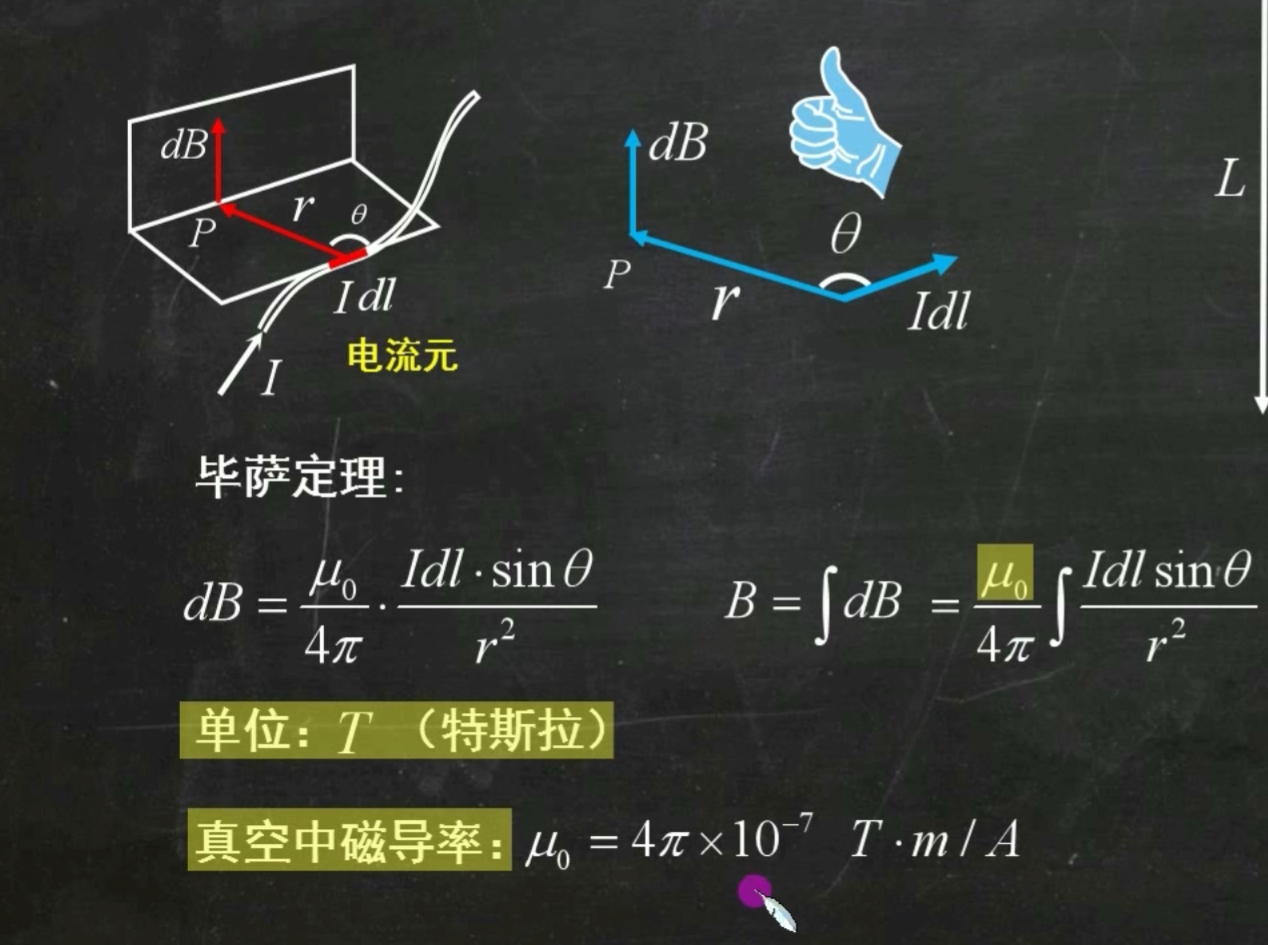 dB
r
θ
P
I dl
电流元
I
dB
θ
P
r
Idl
L
毕萨定理:
dB = μ₀/4π · Idl · sin θ/r²
B = ∫ dB = μ₀/4π ∫ Idl sin θ/r²
单位: T （特斯拉）
真空中磁导率: μ₀ = 4π × 10⁻⁷ T · m / A